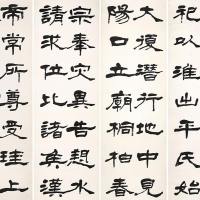 祀以淮出平氏始
大復潛行地中見
陽口立廟桐柏春
宗奉災異告愬水
請求位比諸侯漢
帝常所尊受珪上